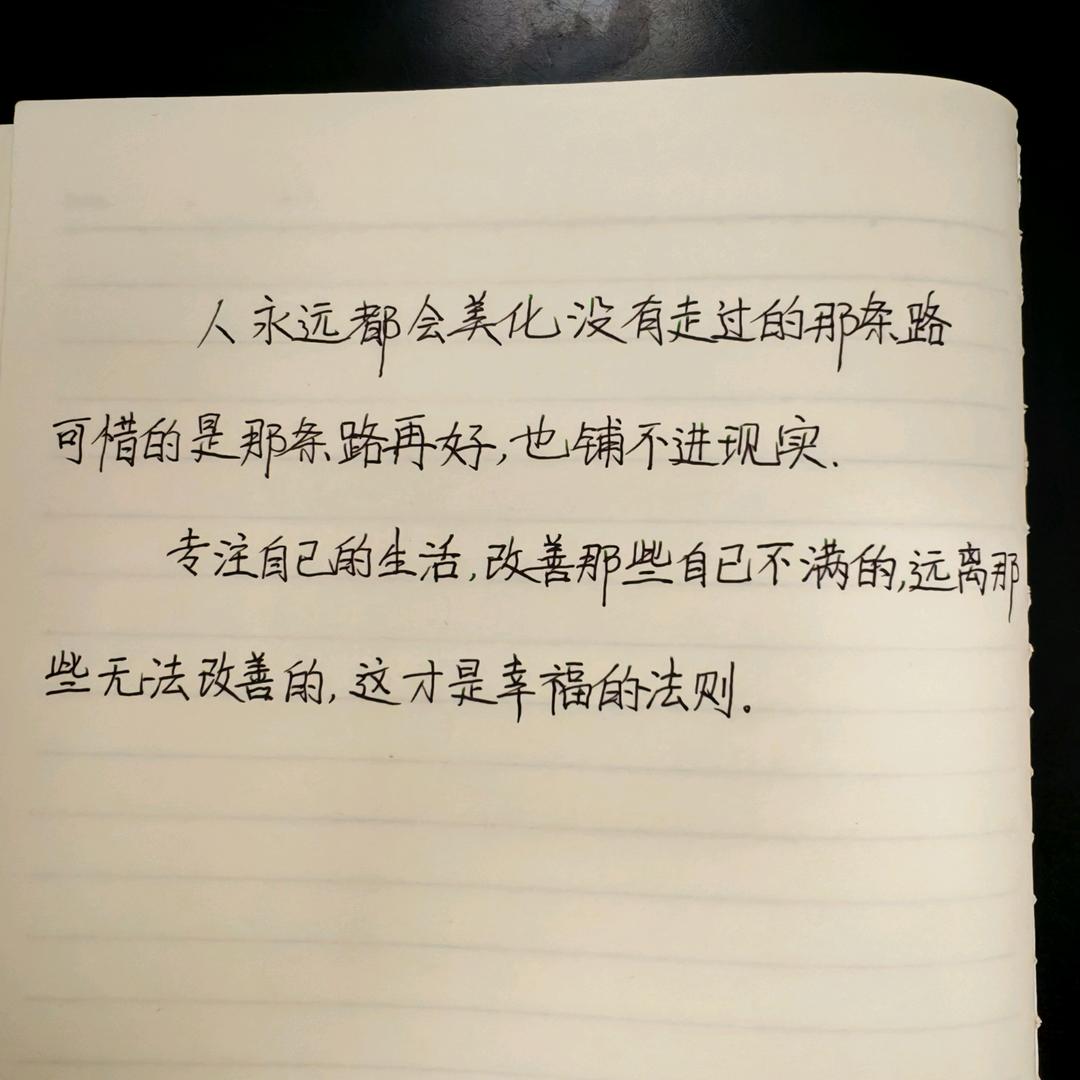 人永远都会美化没有走过的那条路
可惜的是那条路再好,也铺不进现实.
专注自己的生活,改善那些自己不满的,远离那
些无法改善的,这才是幸福的法则.